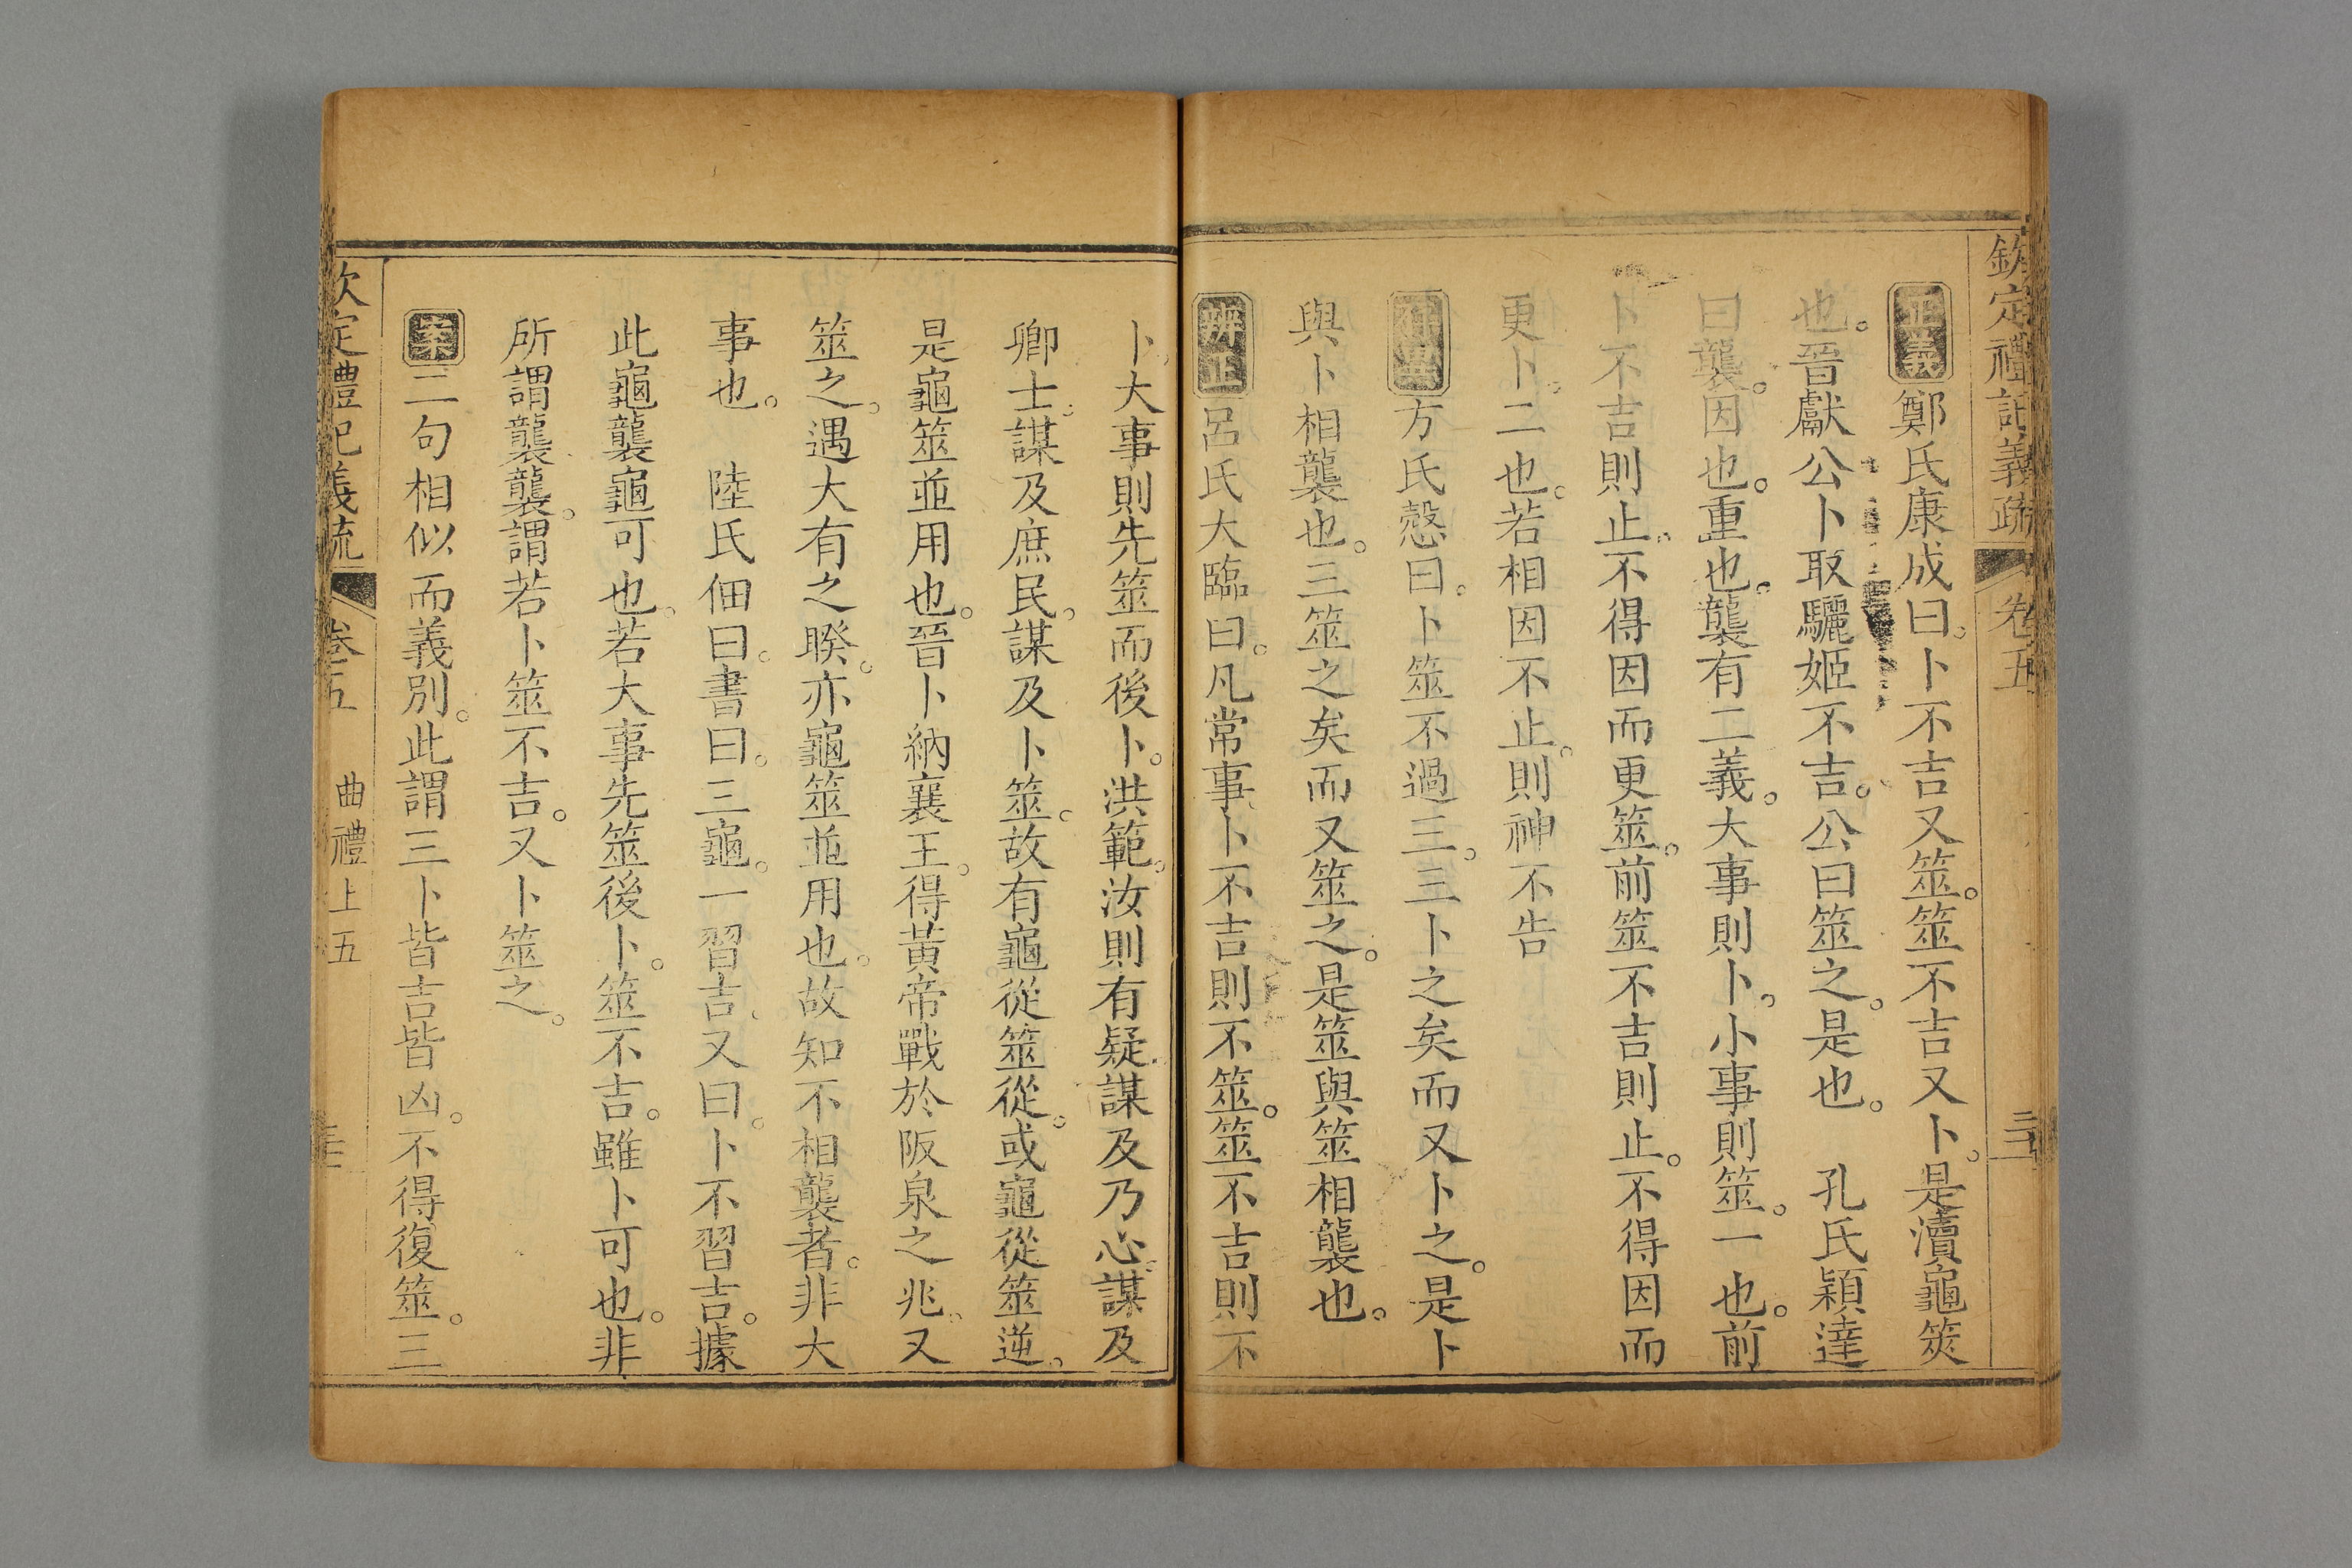 欽定禮記義疏 卷五 三
正義鄭氏康成曰。卜不吉又筮。筮不吉又卜。是瀆龜筴
也。晉獻公卜取驪姬不吉。公曰筮之。是也。 孔氏穎達
曰襲。因也。重也。襲有二義。大事則卜。小事則筮。一也。前
卜不吉則止。不得因而更筮。前筮不吉則止。不得因而
更卜。二也。若相因不止。則神不告
存異方氏慤曰。卜筮不過三。三卜之矣而又卜之。是卜
與卜相襲也。三筮之矣而又筮之。是筮與筮相襲也。
辨正呂氏大臨曰。凡常事、卜不吉則不筮。筮不吉則不
卜、大事則先筮而後卜。洪範。汝則有疑。謀及乃心。謀及
卿士。謀及庶民。謀及卜筮。故有龜從筮從。或龜從筮逆。
是龜筮並用也。晉卜納襄王。得黃帝戰於阪泉之兆。又
筮之。遇大有之睽。亦龜筮並用也。故知不相襲者。非大
事也。 陸氏佃曰。書曰。三龜。一習吉、又曰。卜不習吉。據
此龜襲龜可也。若大事先筮後卜。筮不吉。雖卜可也。非
所謂襲。襲。謂若卜筮不吉。又卜筮之。
案二句相似而義別。此謂三卜皆吉皆凶。不得復筮。三
欽定禮記義疏 卷五 曲禮上五